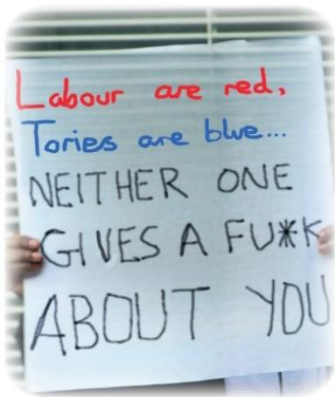 Labour are red,
Tories are blue...
NEITHER ONE
GIVES A FU*K
ABOUT YOU